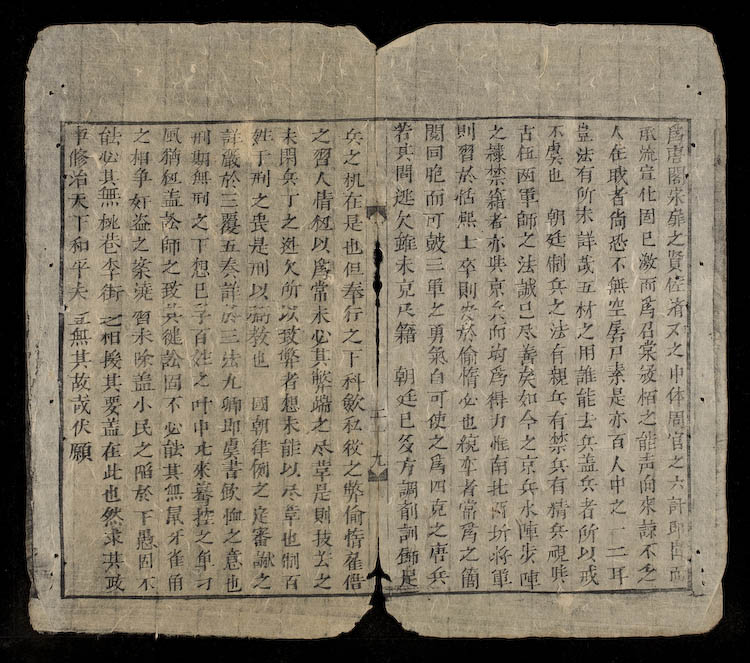 爲唐閣宋之賢佐消又之申体周官之六計即出而
承流宣化固已激而爲召棠栢之能声向來諒不乏
人在耿者尚恐不無空孱尸素是亦百人中之一二耳
豈法有所未詳哉五材之用誰能去兵盖兵者所以戒
不虞也 朝廷制兵之法有親兵有禁兵有精兵視與
古伍兩軍師之法誠已尽善矣如今之京兵水陣步陣
之隸禁籍者亦與京兵而均爲得力惟南北兩圻將軍
則習於恬熙士卒則失於偷惰必也統率者常爲之簡
閱同胞而可鼓三軍之勇氣自可使之爲四克之唐兵
若其間逃欠雖未克尽籍 朝廷已多方調劑訓飭是
九
兵之机在是也但奉行之下科歛私役之弊偷惰雇借
之習人情狃以爲常未必其弊端之尽革是則技之
未閑兵丁之逃欠所以致弊者想未能以尽革也制百
姓于刑之衷是刑以弼教也 國朝律例之定審讞之
詳嚴於三覆五奏詳於三法九卿即虞書欽恤之意也
刑期無刑之下想已孚百姓之叶中比來控之单刁
風猶狃盖訟師之致其徒訟固不必能其無鼠牙雀角
之相争奸盗之案澆習未除盖小民之陷於下愚固不
能必其無桃巷李街之相援其要盖在此也然求其政
事修治天下和平夫豈無其故哉伏願